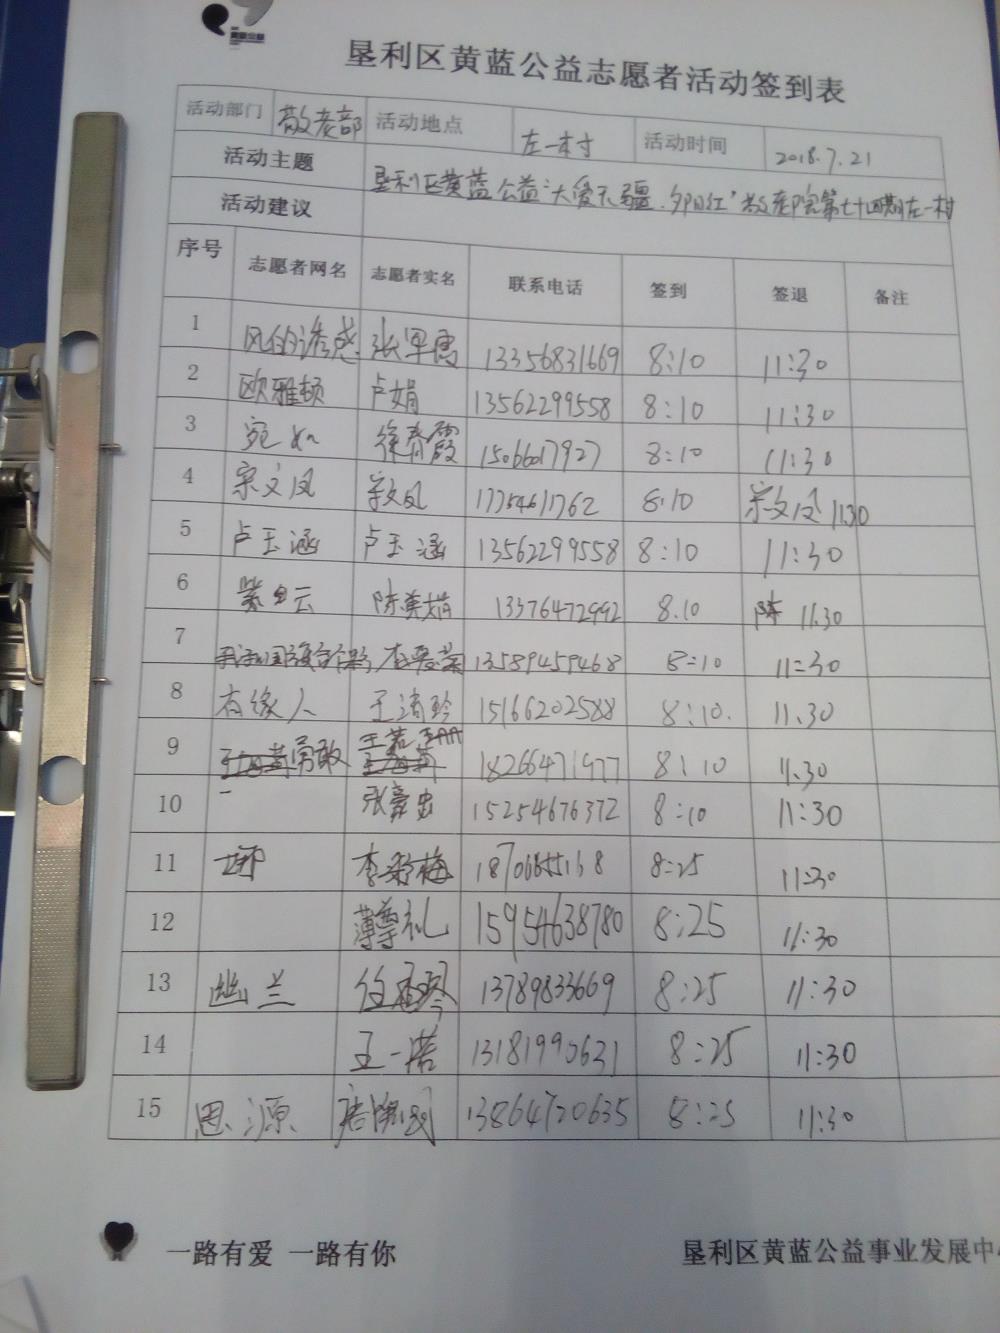 垦利区黄蓝公益志愿者活动签到表
活动部门 敬老部 活动地点 左一村 活动时间 2018.7.21
活动主题 垦利区黄蓝公益"大爱无疆.夕阳红"敬老院第七十四期左一村
活动建议
序号 志愿者网名 志愿者实名 联系电话 签到 签退 备注
1 风的诱惑 张军霞 13356831669 8:10 11:30
2 欧雅顿 卢娟 13562299558 8:10 11:30
3 宛如 徐春霞 15066017927 8:10 11:30
4 宗文凤 宗文凤 17754611762 8:10 宗文凤 11:30
5 卢玉涵 卢玉涵 13562299558 8:10 11:30
6 紫云 陈美娟 13376472992 8.10 陈 11.30
7 13589459468 8:10 11:30
8 有缘人 王清玲 15166202588 8:10. 11.30
9 勇敢 王若 18266471977 8:10 11.30
10 张 15254676372 8:10 11:30
11 李彩梅 8:25 11:30
12 薄尊礼 15954638780 8:25 11:30
13 幽兰 任 13789833669 8:25 11:30
14 王一诺 13181990631 8:25 11:30
15 思源 13864720635 8:25 11:30
一路有爱 一路有你 垦利区黄蓝公益事业发展中